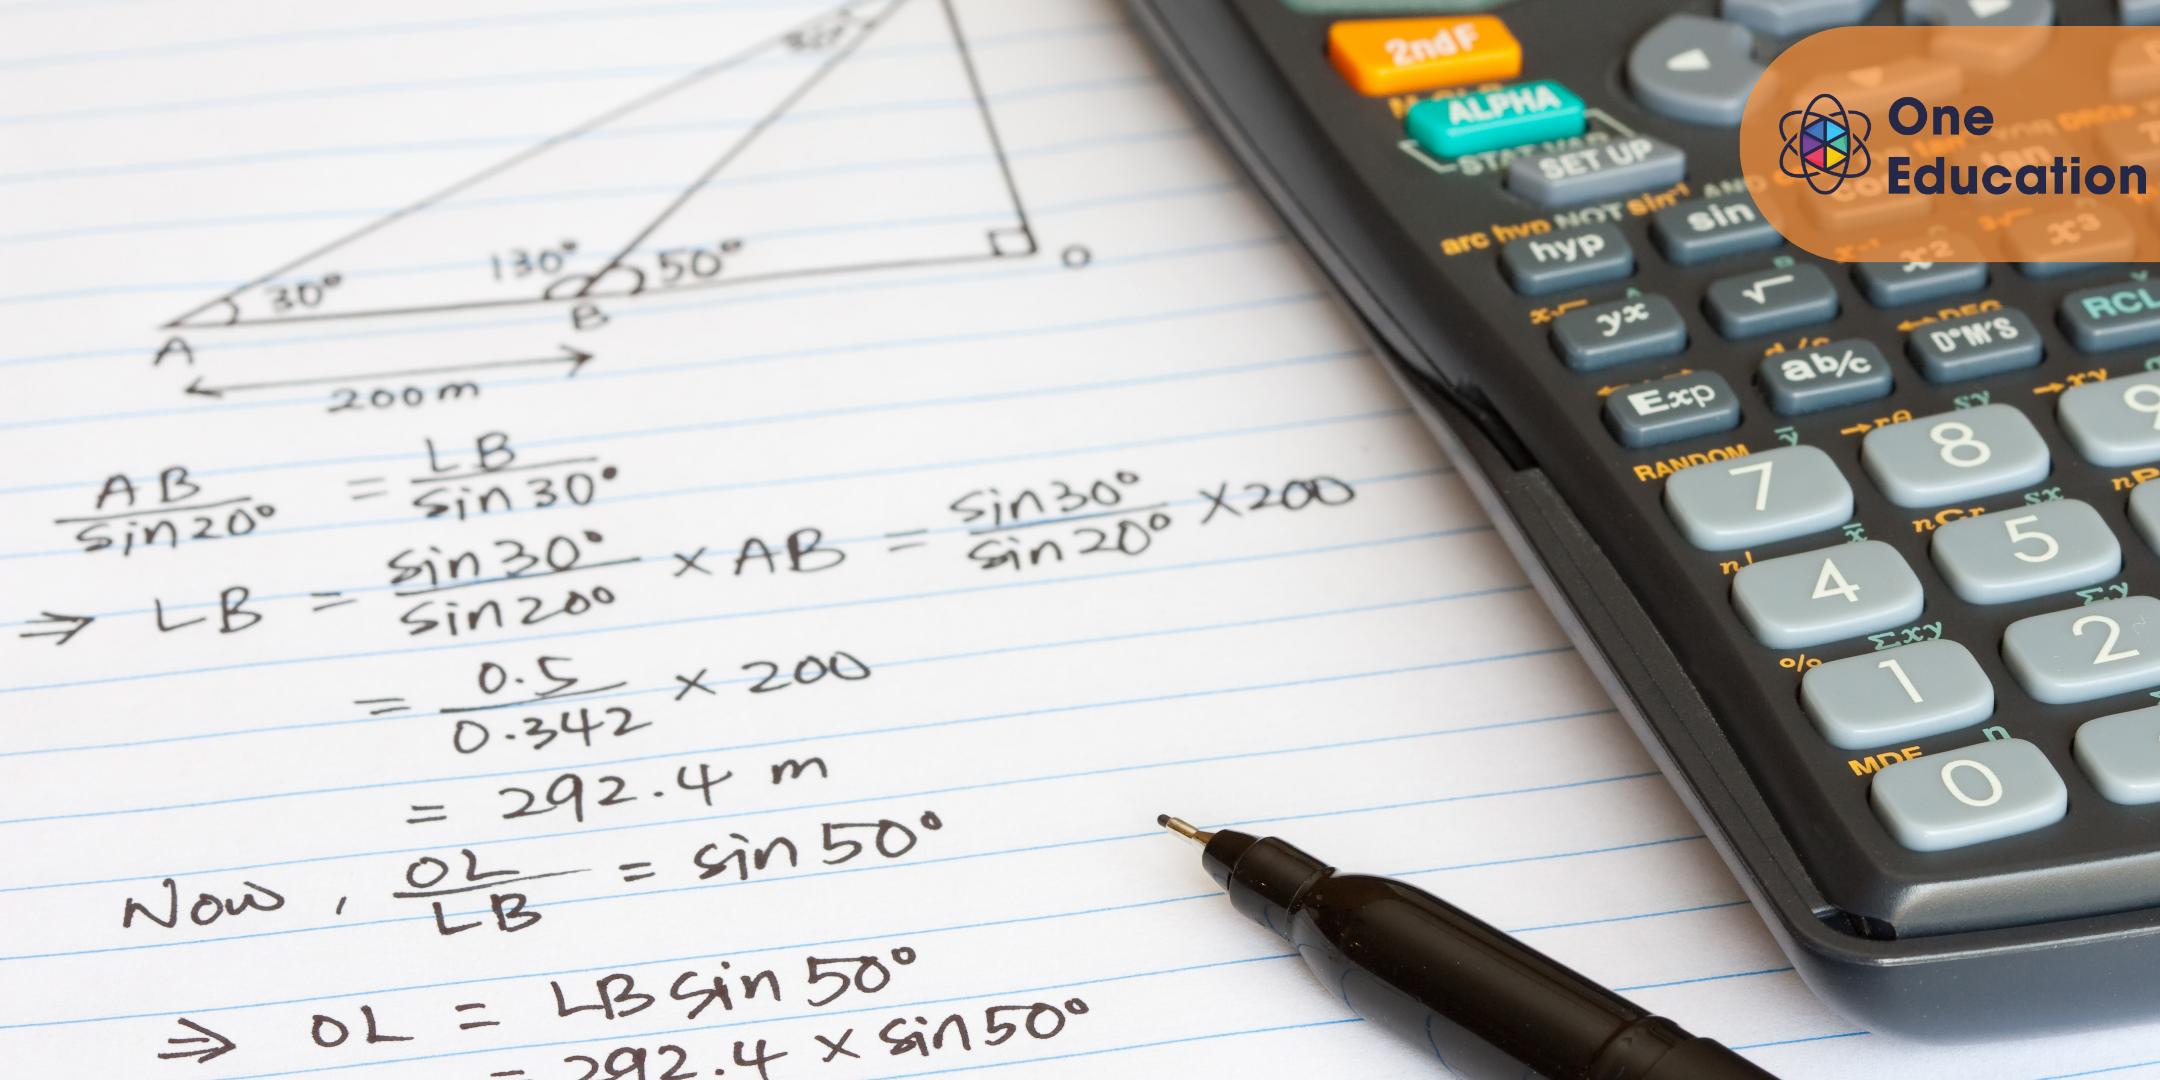 130°
50°
30°
O
B
A
200 m
AB / sin 20° = LB / sin 30°
⇒ LB = sin 30° / sin 20° × AB = sin 30° / sin 20° × 200
= 0.5 / 0.342 × 200
= 292.4 m
Now, OL / LB = sin 50°
⇒ OL = LB sin 50°
= 292.4 × sin 50°
One
Education
2ndF
ALPHA
STAT VAR
SET UP
arc hyp NOT sin⁻¹ AND
hyp sin
yˣ √ x² x³
Exp ab/c D°M'S RCL
←DEG
→rθ →xy
RANDOM
7 8 9
n! nCr
4 5
% Σxy Σy
1 2
MDF n
0